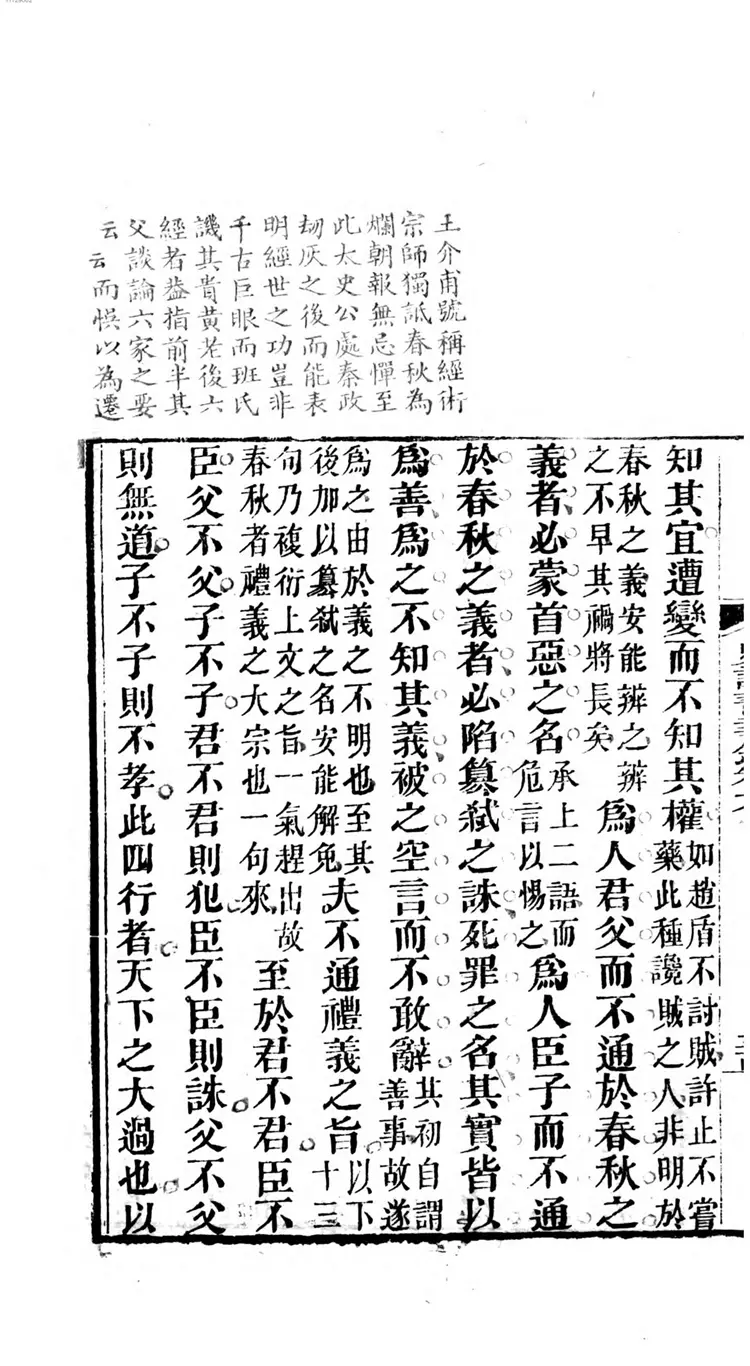 王介甫號稱經術
宗師獨詆春秋為
爛朝報無忌憚至
此太史公處秦政
刼灰之後而能表
明經世之功豈非
千古巨眼而班氏
譏其貴黃老後六
經者葢指前半其
父談論六家之要
云云而悞以為遷
知其宜遭變而不知其權如趙盾不討賊許止不嘗藥此種讒賊之人非明於
春秋之義安能辨之辨之不早其禍將長矣爲人君父而不通於春秋之
義者必蒙首惡之名承上二語而危言以惕之爲人臣子而不通
於春秋之義者必陷篡弑之誅死罪之名其實皆以
爲善爲之不知其義被之空言而不敢辭其初自謂善事故遂
爲之由於義之不明也至其後加以篡弑之名安能解免夫不通禮義之旨以下十三
句乃複衍上文之旨一氣趕出故春秋者禮義之大宗也一句來至於君不君臣不
臣父不父子不子君不君則犯臣不臣則誅父不父
則無道子不子則不孝此四行者天下之大過也以